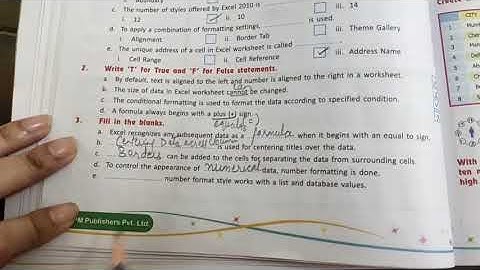 c. The number of styles offered by Excel 2010 is
i. 12 ii. 10 iii. 14
d. To apply a combination of formatting settings, is used.
i. Alignment ii. Border Tab iii. Theme Gallery
e. The unique address of a cell in Excel worksheet is called
i. Cell Range ii. Cell Reference iii. Address Name
2. Write 'T' for True and 'F' for False statements.
a. By default, text is aligned to the left and number is aligned to the right in a worksheet.
can
b. The size of data in Excel worksheet cannot be changed.
c. The conditional formatting is used to format the data according to specified condition.
d. A formula always begins with a plus (+) sign.
equal (=)
3. Fill in the blanks.
a. Excel recognizes any subsequent data as a formula when it begins with an equal to sign.
b. Centring Data across column is used for centering titles over the data.
c. Borders can be added to the cells for separating the data from surrounding cells.
d. To control the appearance of numerical data, number formatting is done.
e. number format style works with a list and database values.
M Publishers Pvt. Ltd.
CITY
With
ten
high